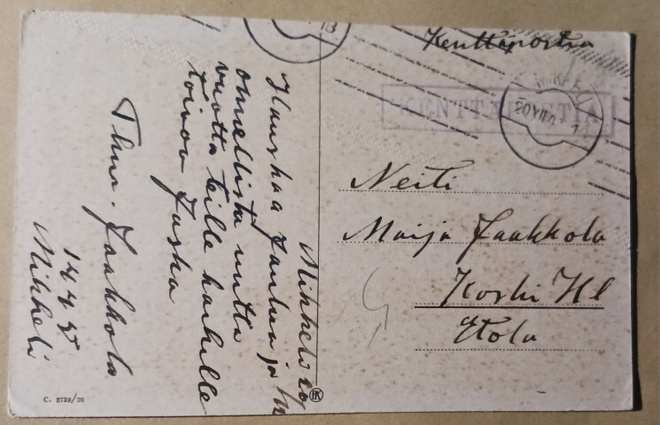 Kenttäpostia
KENTTÄPOSTIA
Neiti
Maija Jaakkola
Koski Hl
Etola
Mikkeli
Hauskaa Joulua ja
onnellista uutta
vuotta teille kaikille
toivoo Juska
Thur. Jaakkola
14.4.5
Mikkeli
C. 2729/20